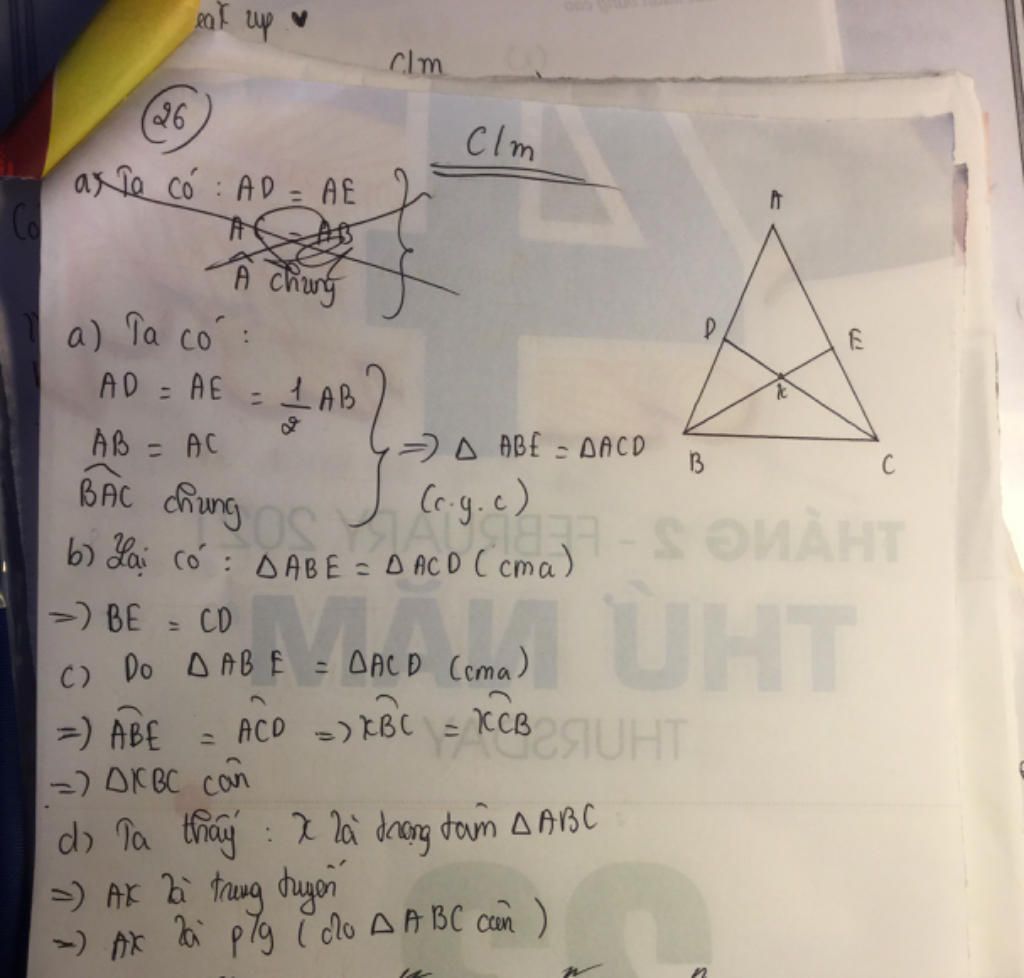 eak up ♥
Clm
26
Clm
a) Ta có : AD = AE
A = AB
A chung
a) Ta có :
AD = AE = 1/2 AB
AB = AC
BAC chung
=> △ ABE = △ACD
(c.g.c)
A
D
E
K
B
C
b) Lại có : △ABE = △ACD (cma)
=> BE = CD
c) Do △ABE = △ACD (cma)
=> ABE = ACD => KBC = KCB
=> △KBC cân
d) Ta thấy : K là trọng tâm △ABC
=> AK là trung tuyến
=> AK là p/g (do △ABC cân)
THÁNG 2 - FEBRUARY 2021
THỨ NĂM
THURSDAY